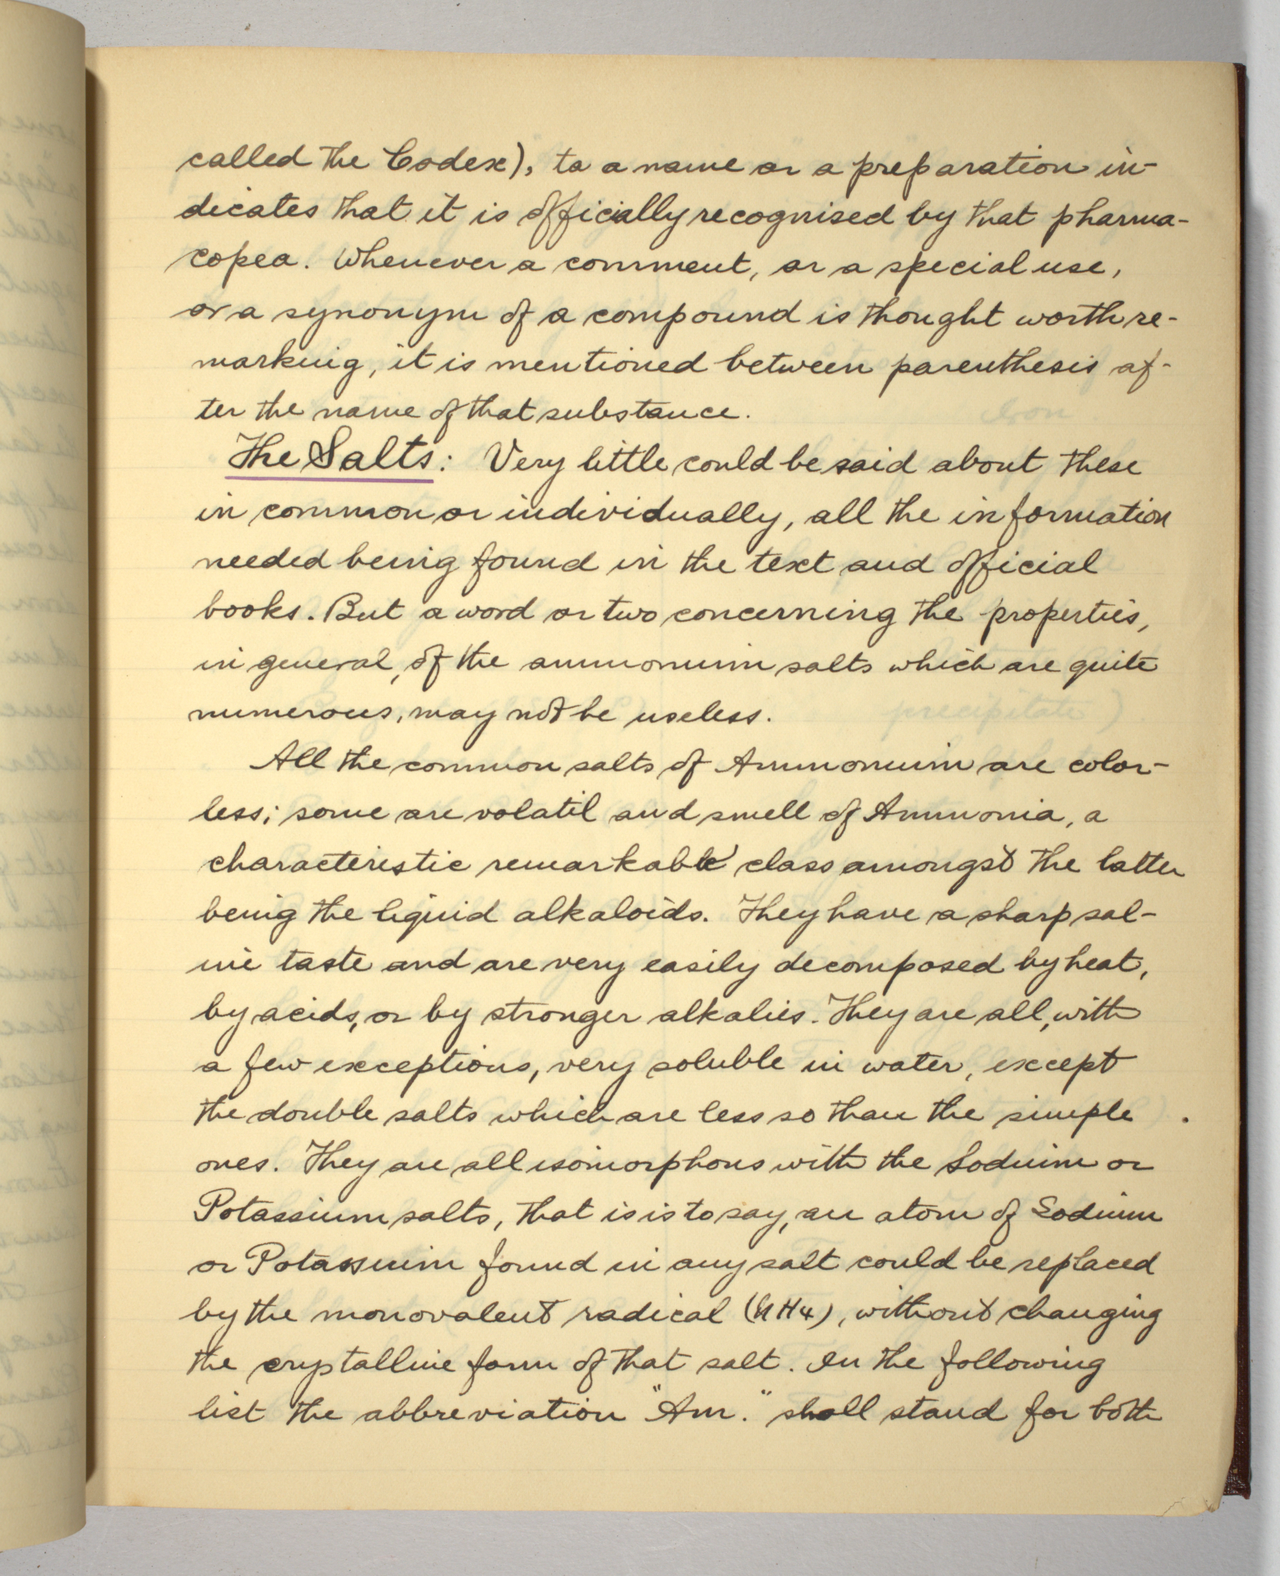 called the Codex), to a name or a preparation in-
dicates that it is officially recognised by that pharma-
copea. Whenever a comment, or a special use,
or a synonym of a compound is thought worth re-
marking, it is mentioned between parenthesis af-
ter the name of that substance.
The Salts: Very little could be said about these
in common or individually, all the information
needed being found in the text and official
books. But a word or two concerning the properties,
in general, of the ammonium salts which are quite
numerous, may not be useless.
All the common salts of Ammonium are color-
less; some are volatil and smell of Ammonia, a
characteristic remarkable class amongst the latter
being the liquid alkaloids. They have a sharp sal-
ine taste and are very easily decomposed by heat,
by acids, or by stronger alkalies. They are all, with
a few exceptions, very soluble in water, except
the double salts which are less so than the simple
ones. They are all isomorphous with the Sodium or
Potassium salts, that is is to say, an atom of Sodium
or Potassium found in any salt could be replaced
by the monovalent radical (NH4), without changing
the crystalline form of that salt. In the following
list the abbreviation "Am." shall stand for both